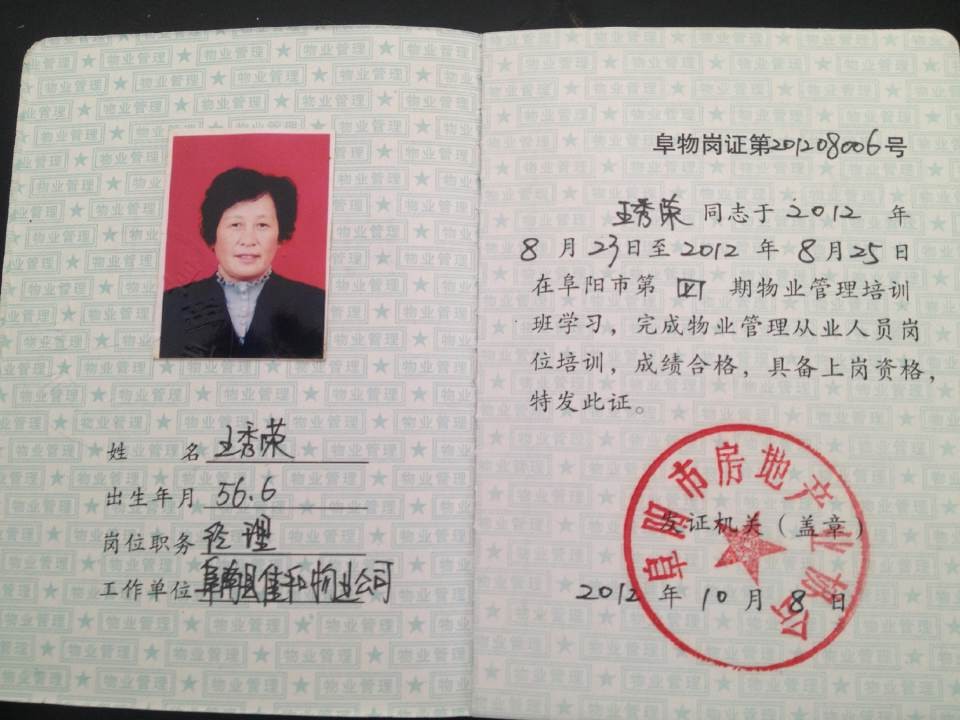 姓 名 王秀荣
出生年月 56.6
岗位职务 经理
工作单位 阜南县佳和物业公司
阜物岗证第201208006号
王秀荣 同志于 2012 年
8 月 23 日至 2012 年 8 月 25 日
在阜阳市第 四 期物业管理培训
班学习，完成物业管理从业人员岗
位培训，成绩合格，具备上岗资格，
特发此证。
阜阳市房地产业协会
发证机关（盖章）
2012 年 10 月 8 日